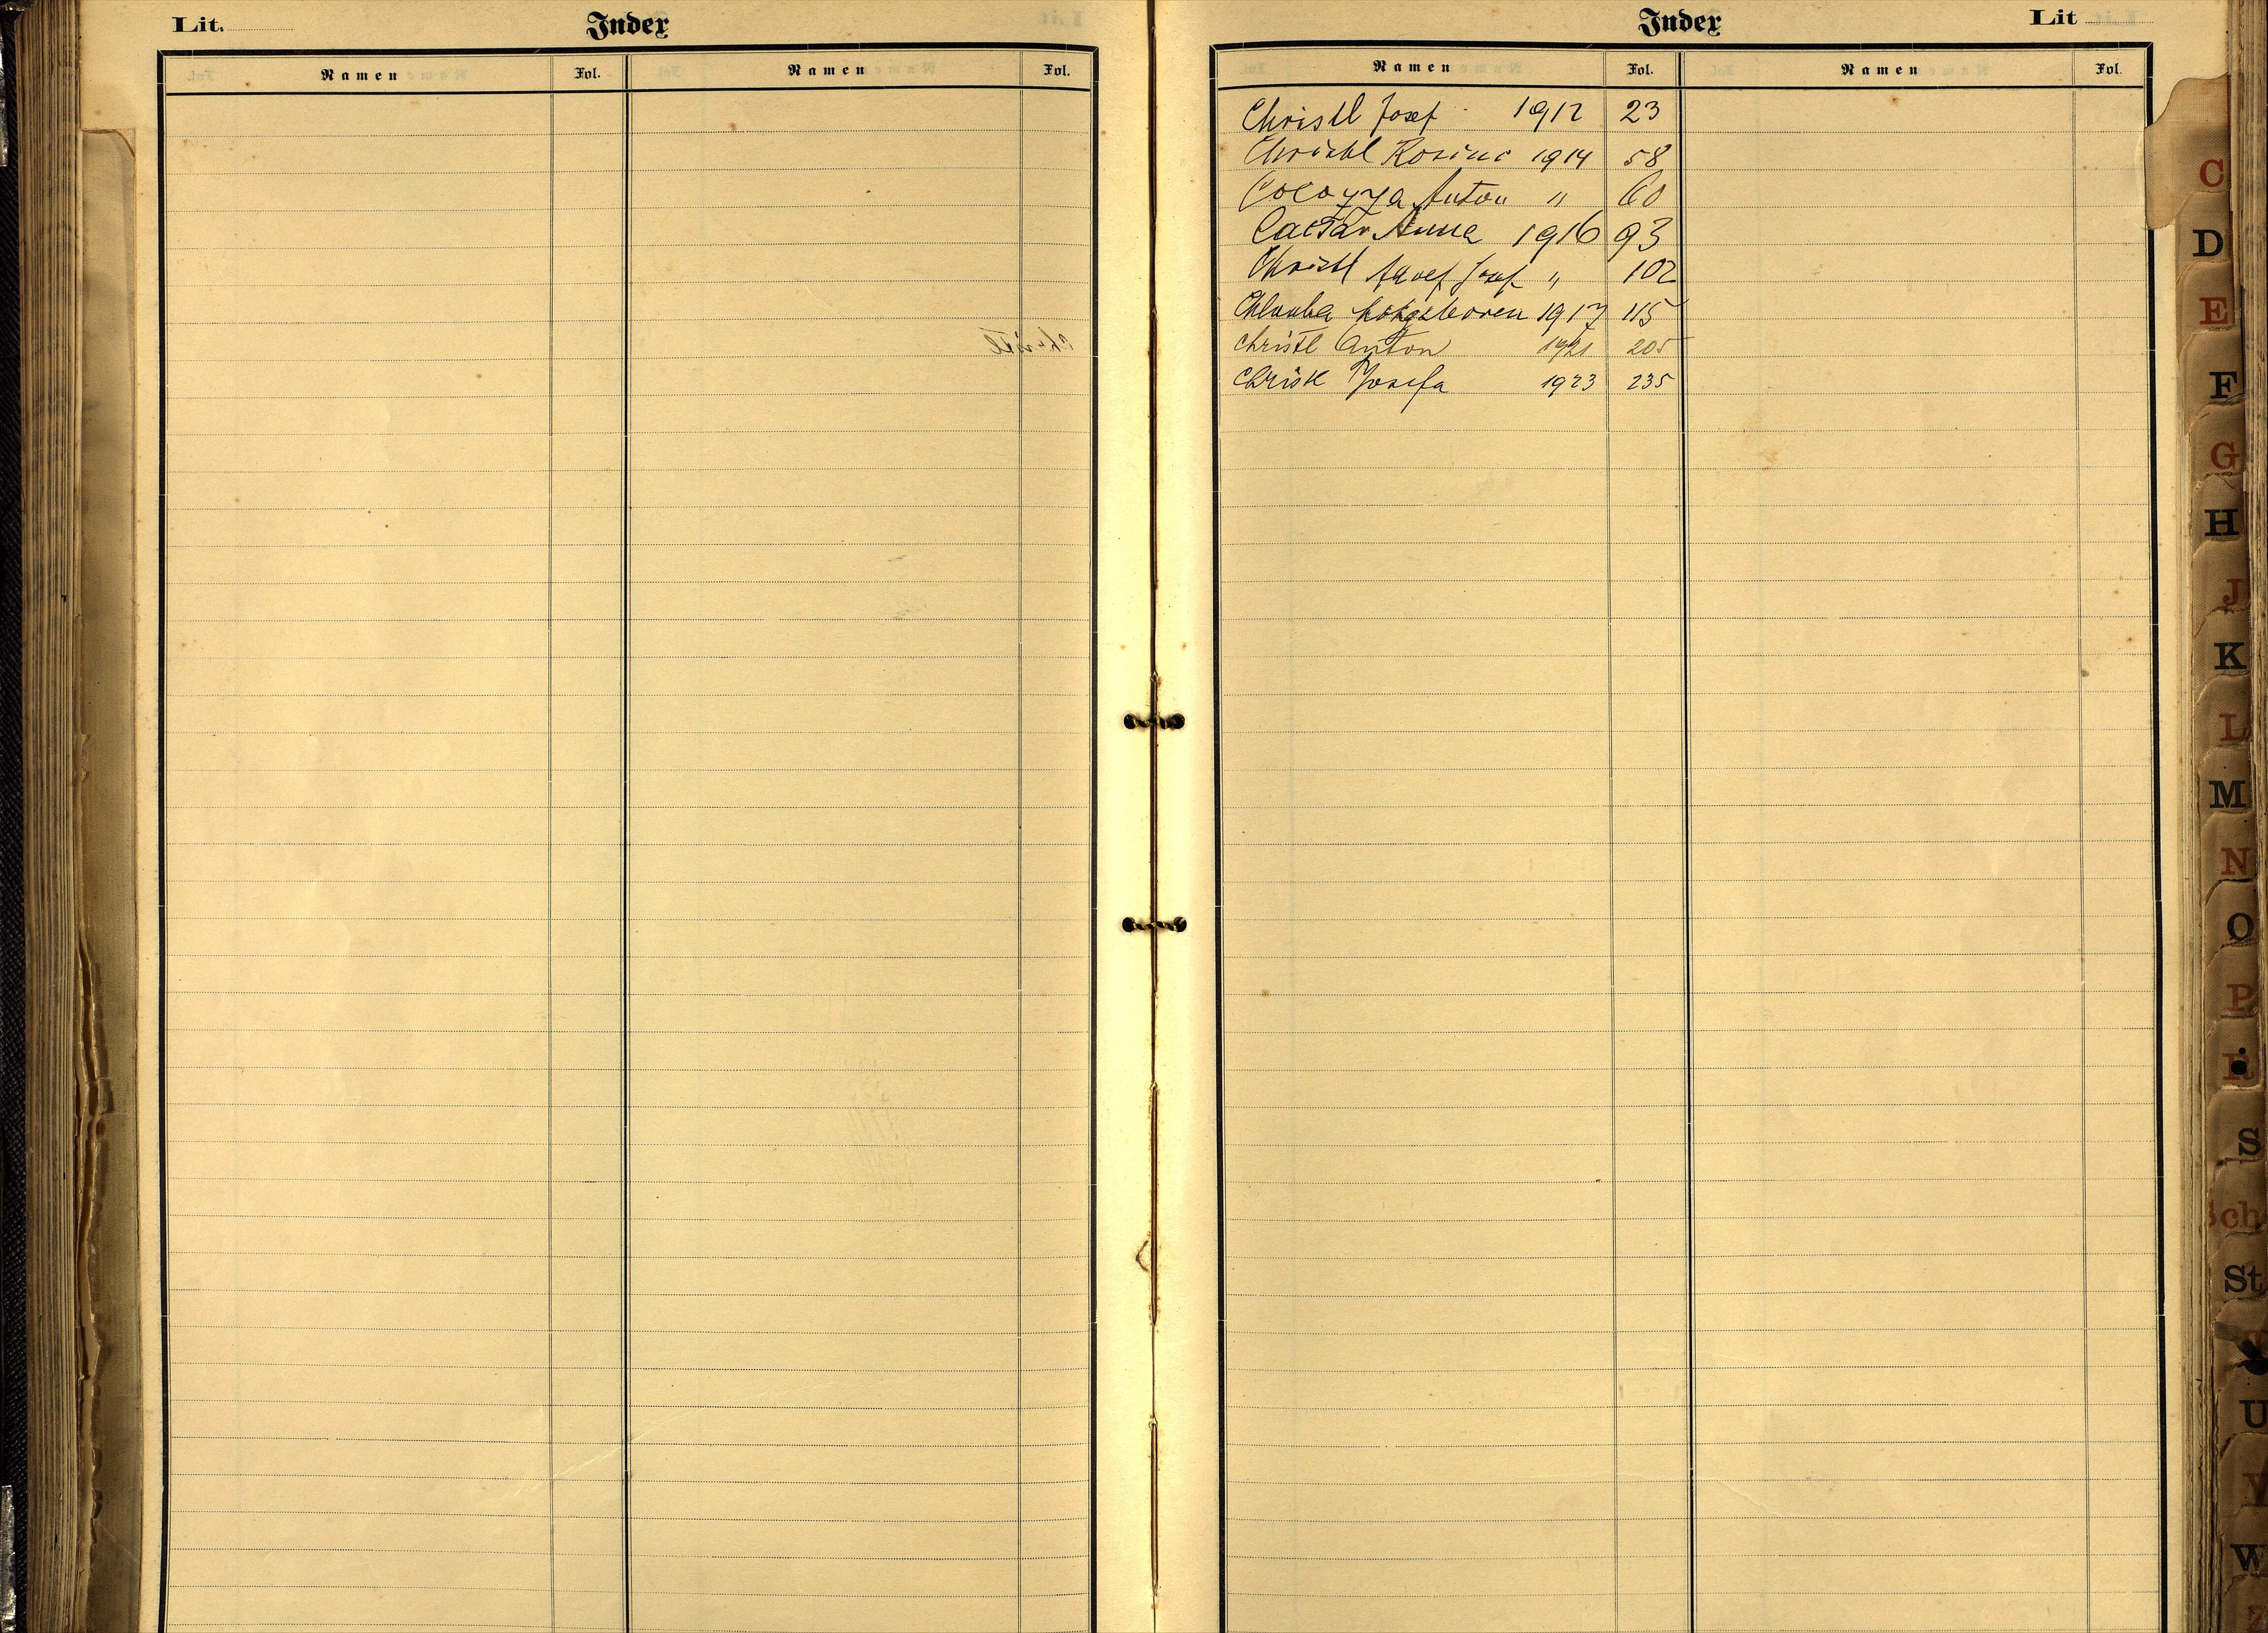 Lit.
Index
Namen Fol. Namen Fol.
Index
Lit
Namen Fol. Namen Fol.
Christl Josef 1912 23
Christl Rosina 1914 58
Anton " 60
Anna 1916 93
Christl Josef " 102
1917 115
Christl Anton 1921 205
Christl Josefa 1923 235
C
D
E
F
G
H
J
K
L
M
N
O
P
R
S
Sch
St
U
V
W
Z